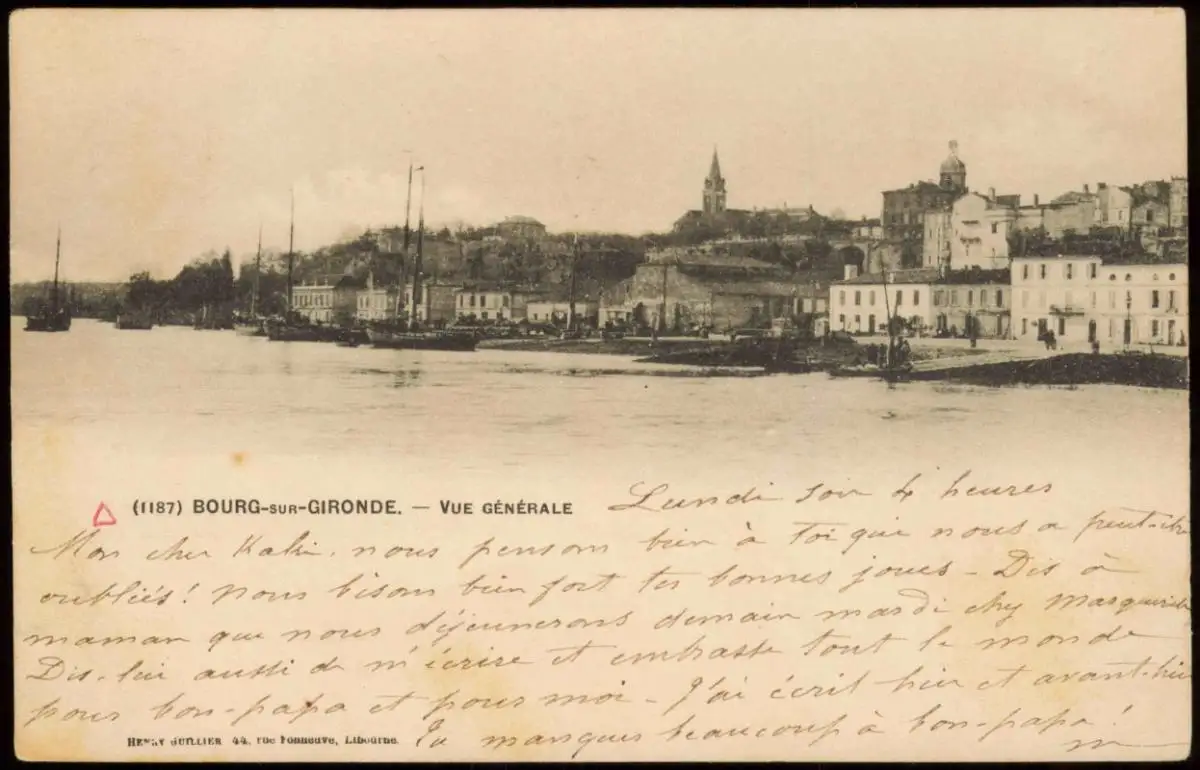 (1187) BOURG-SUR-GIRONDE. — VUE GÉNÉRALE
Lundi soir 4 heures
Mon cher Kaki, nous pensons bien à toi qui nous a peut-être
oubliés! Nous bisons bien fort tes bonnes joues - Dis à
maman que nous déjeunerons demain mardi chez Marguerite
Dis-lui aussi de m'écrire et embrasse tout le monde
pour bon-papa et pour moi - J'ai écrit hier et avant-hier
Tu manques beaucoup à bon-papa!
HENRY GUILLIER 44, rue Fonneuve, Libourne.